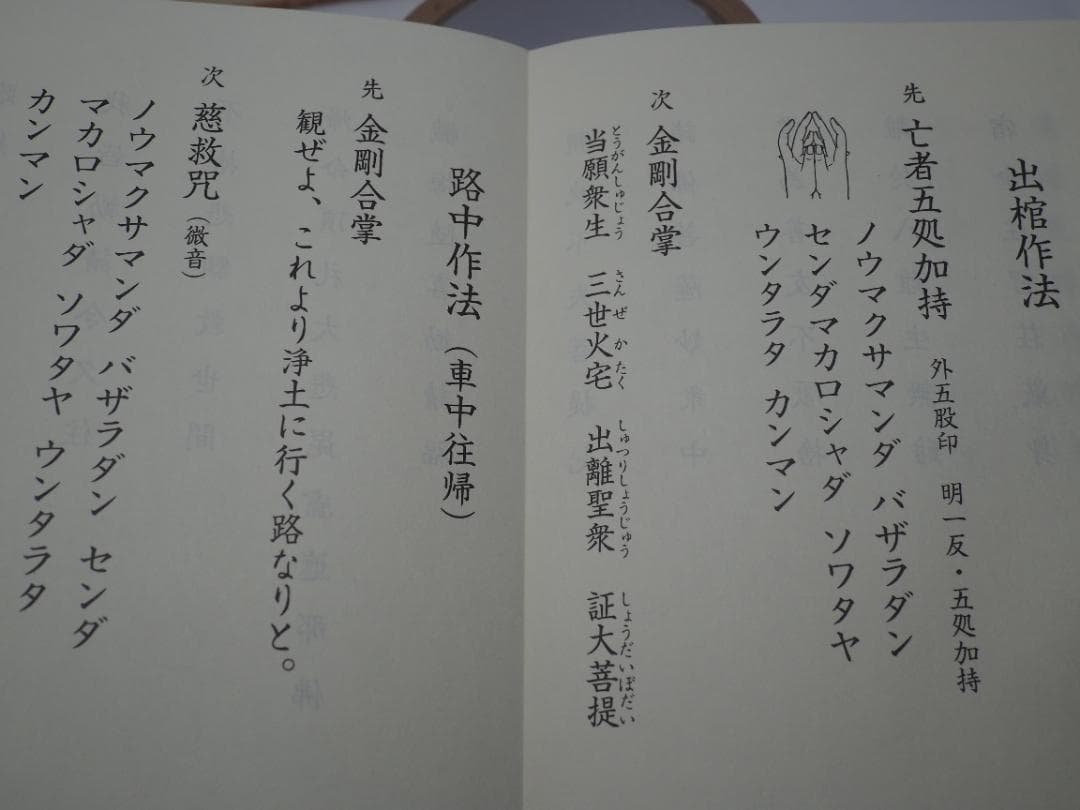 出棺作法
先 亡者五処加持 外五股印 明一反・五処加持
ノウマクサマンダ バザラダン
センダマカロシャダ ソワタヤ
ウンタラタ カンマン
次 金剛合掌
とうがんしゅじょう さんぜかたく しゅつりしょうじゅう しょうだいぼだい
当願衆生 三世火宅 出離聖衆 証大菩提
路中作法（車中往帰）
先 金剛合掌
観ぜよ、これより浄土に行く路なりと。
次 慈救咒（微音）
ノウマクサマンダ バザラダン センダ
マカロシャダ ソワタヤ ウンタラタ
カンマン